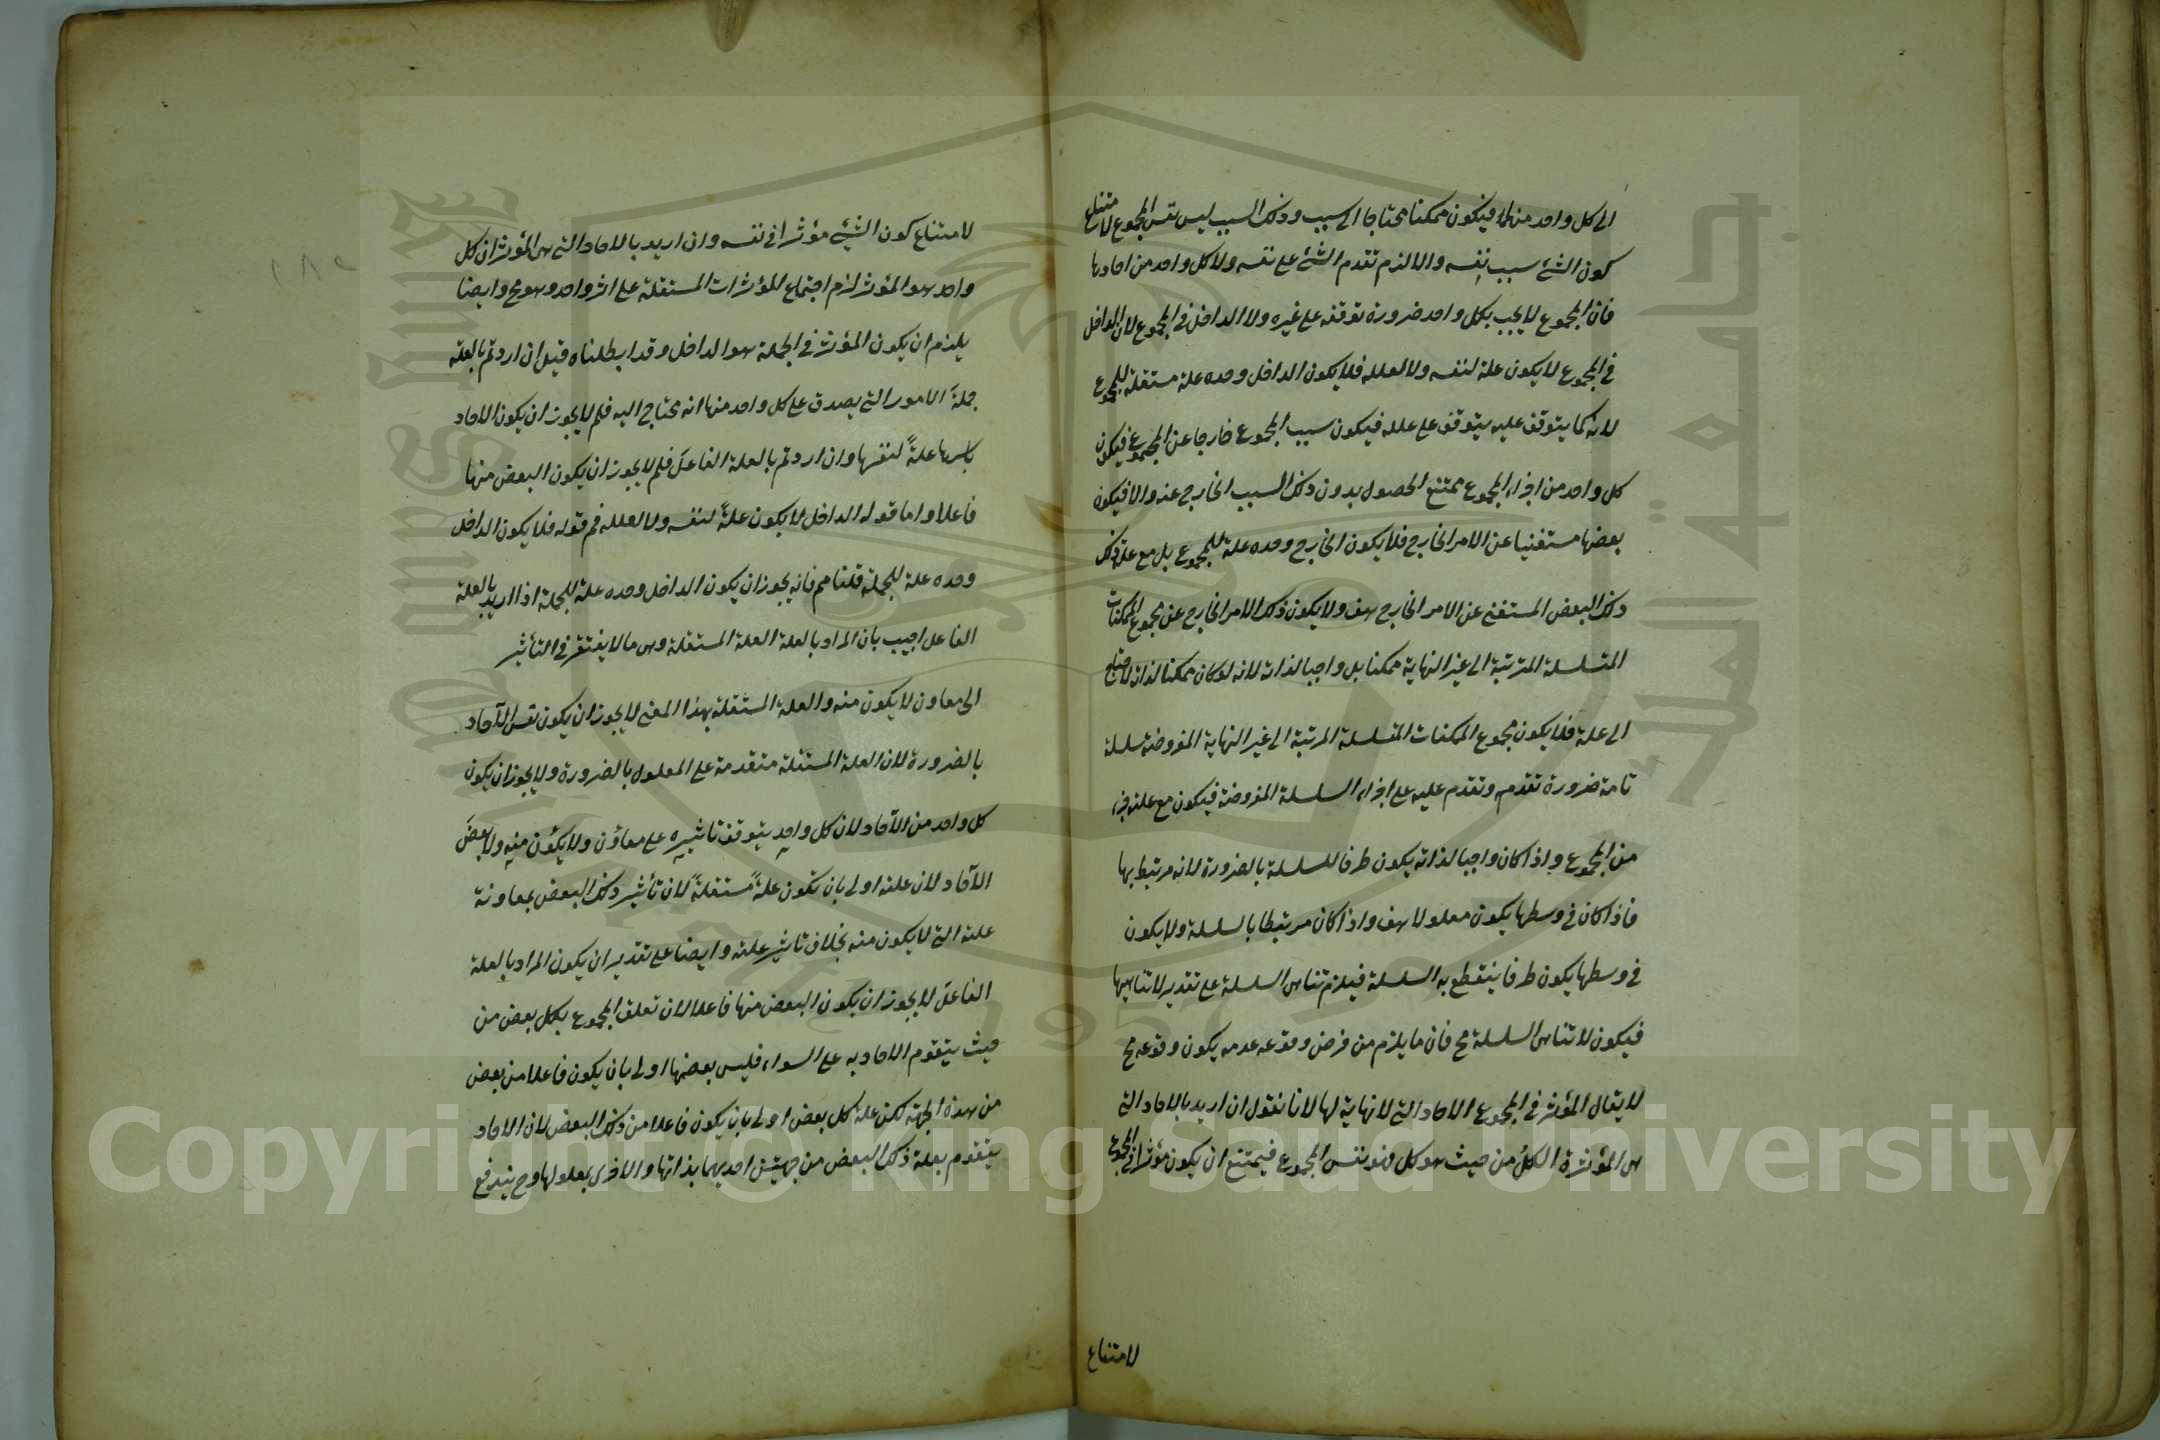 الى كل واحد منها فيكون ممكنا محتاجا الى سبب وذلك السبب ليس نفس المجموع لامتناع
كون الشئ سبب نفسه والا لزم تقدم الشئ على نفسه ولا كل واحد من احادها
فان المجموع لا يجب بكل واحد ضرورة توقفه على غيره ولا الداخل في المجموع لان الداخل
في المجموع لا يكون علة لنفسه ولا لعلله فلا يكون الداخل وحده علة مستقلة للمجموع
لانه كما يتوقف عليه يتوقف على علله فيكون سبب المجموع خارجا عن المجموع فيكون
كل واحد من اجزاء المجموع ممتنع الحصول بدون ذلك السبب الخارج عنه والا فيكون
بعضها مستغنيا عن الامر الخارج فلا يكون الخارج وحده علة للمجموع بل مع علة ذلك
ذلك البعض المستغنى عن الامر الخارج هف ولا يكون ذلك الامر الخارج عن مجموع الممكنات
المتسلسلة المترتبة الى غير النهاية ممكنا بل واجبا لذاته لانه لو كان ممكنا لذاته لاحتاج
الى علة فلا يكون مجموع الممكنات المتسلسلة المرتبة الى غير النهاية المفروضة سلسلة
تامة ضرورة تقدم وتقدم عليه على اجزاء السلسلة المفروضة فيكون مع علته جزء
من المجموع واذا كان واجبا لذاته يكون طرفا للسلسلة بالضرورة لانه مرتبط بها
فاذا كان في وسطها يكون معلولا هف واذا كان مرتبطا بالسلسلة ولا يكون
في وسطها يكون طرفا ينقطع به السلسلة فيلزم تناهى السلسلة على تقدير لاتناهيها
فيكون لاتناهى السلسلة مح فان ما يلزم من فرض وقوعه عدمه يكون وقوعه مح
لا يقال المؤثر في المجموع الاحاد التى لا نهاية لها لانا نقول ان اريد بالاحاد التى
هى المؤثرة الكل من حيث هو كل فهو نفس المجموع فيمتنع ان يكون مؤثرا في المجموع
لامتناع
لامتناع كون الشئ مؤثرا في نفسه وان اريد بالاحاد التى هى المؤثر ان كل
واحد هو المؤثر لزم اجتماع المؤثرات المستقلة على اثر واحد وهو مح وايضا
يلزم ان يكون المؤثر في الجملة هو الداخل وقد ابطلناه قيل ان اردتم بالعلة
جملة الامور التى يصدق على كل واحد منها انه محتاج اليه فلم لا يجوز ان يكون الاحاد
باسرها علةً لنفسها وان اردتم بالعلة الفاعل فلم لا يجوز ان يكون البعض منها
فاعلا واما قوله الداخل لا يكون علةً لنفسه ولا لعلله فم قوله فلا يكون الداخل
وحده علة للجملة قلنا مم فانه يجوز ان يكون الداخل وحده علة للجملة اذا اريد بالعلة
الفاعل اجيب بان المراد بالعلة العلة المستقلة وهى ما لا يفتقر في التأثير
الى معاون لا يكون منه والعلة المستقلة بهذا المعنى لا يجوز ان يكون نفس الآحاد
بالضرورة لان العلة المستقلة متقدمة على المعلول بالضرورة ولا يجوز ان يكون
كل واحد من الآحاد لان كل واحد يتوقف تاثيره على معاون ولا يكون منه ولا بعض
الآحاد لان علته اولى بان تكون علةً مستقلةً لان تأثير ذلك البعض بمعاونة
علته التى لا يكون منه بخلاف تاثير علته وايضا على تقدير ان يكون المراد بالعلة
الفاعل لا يجوز ان يكون البعض منها فاعلا لان تعلق المجموع بكل بعض من
حيث يتقوم الاحاد به على السواء فليس بعضها اولى بان يكون فاعلا من بعض
من هذه الجهة لكن علة كل بعض اولى بان يكون فاعلا من ذلك البعض لان الاحاد
يتقوم بعلة ذلك البعض من جهتين احديهما بذاتها والاخرى بمعلولها وح يندفع
١٨٢
Copyright © King Saud University
جامعة الملك
King Saud University
1957